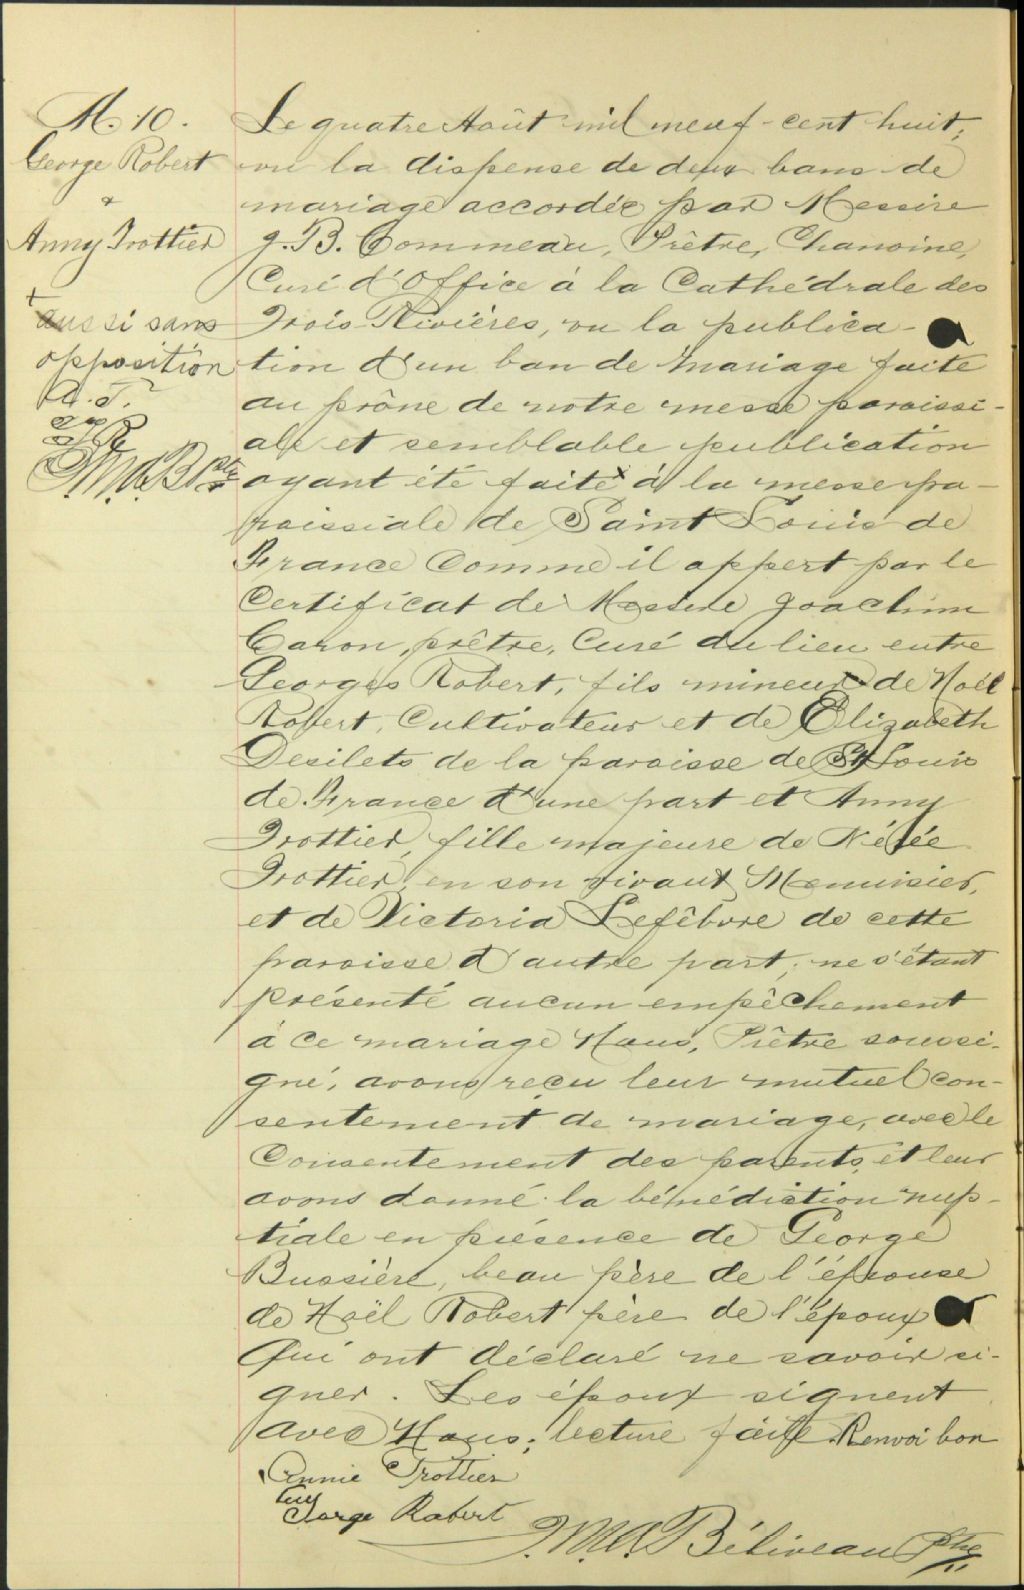 M. 10.
George Robert
&
Anny Trottier
+
aussi sans
opposition
A. T.
G. R.
J. M. A. B. Ptre
Le quatre Août mil neuf-cent huit,
vu la dispense de deux bans de
mariage accordée par Messire
J. B. Commeau, Prêtre, Chanoine,
Curé d'Office à la Cathédrale des
Trois-Rivières, vu la publica-
tion d'un ban de mariage faite
au prône de notre messe paroissi-
ale et semblable publication
ayant été faite x à la messe pa-
roissiale de Saint Louis de
France comme il appert par le
Certificat de Messire Joachim
Caron, prêtre, Curé du lieu entre
Georges Robert, fils mineur de Noël
Robert, Cultivateur et de Elizabeth
Desilets de la paroisse de St Louis
de France d'une part et Anny
Trottier, fille majeure de Nérée
Trottier, en son vivant Menuisier,
et de Victoria Lefêbvre de cette
paroisse d'autre part; ne s'étant
présenté aucun empêchement
à ce mariage Nous, Prêtre soussi-
gné, avons reçu leur mutuel con-
sentement de mariage, avec le
Consentement des parents, et leur
avons donné la bénédiction nup-
tiale en présence de George
Bussière, beau père de l'épouse
de Noël Robert père de l'époux
Qui ont déclaré ne savoir si-
gner. Les époux signent
avec Nous; lecture faite. Renvoi bon
Annie Trottier
George Robert
J. M. A. Béliveau Ptre